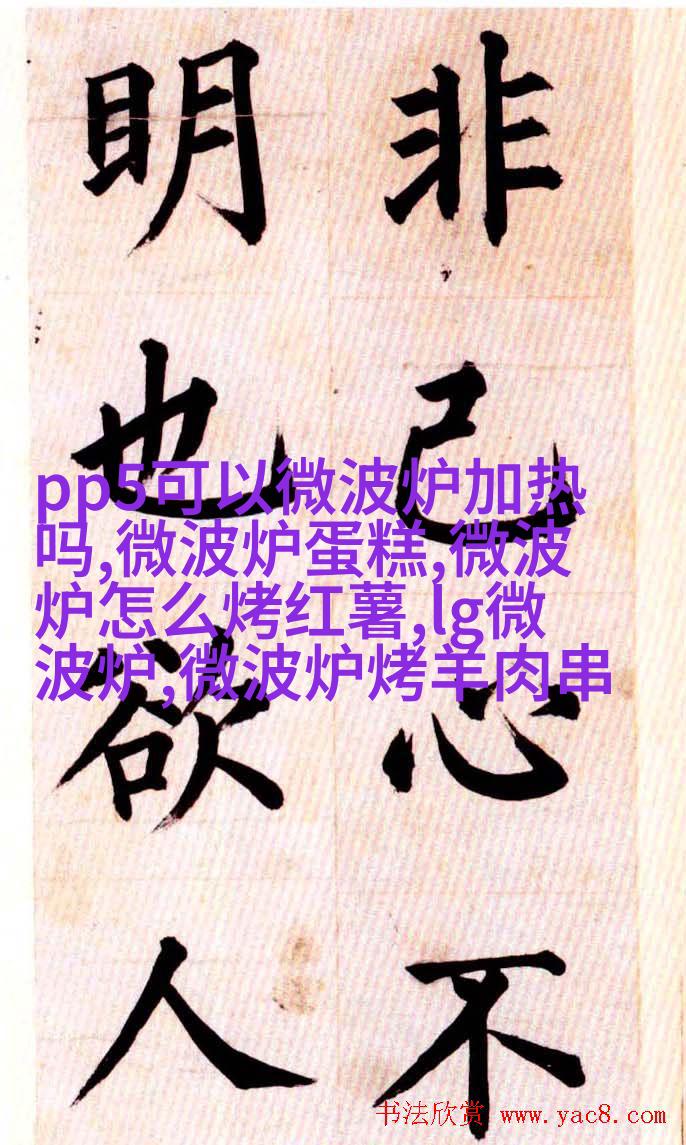 非己心不
眀也欲人
pp5可以微波炉加热
吗,微波炉蛋糕,微波
炉怎么烤红薯,lg微
波炉,微波炉烤羊肉串
书法欣赏 www.yac8.com